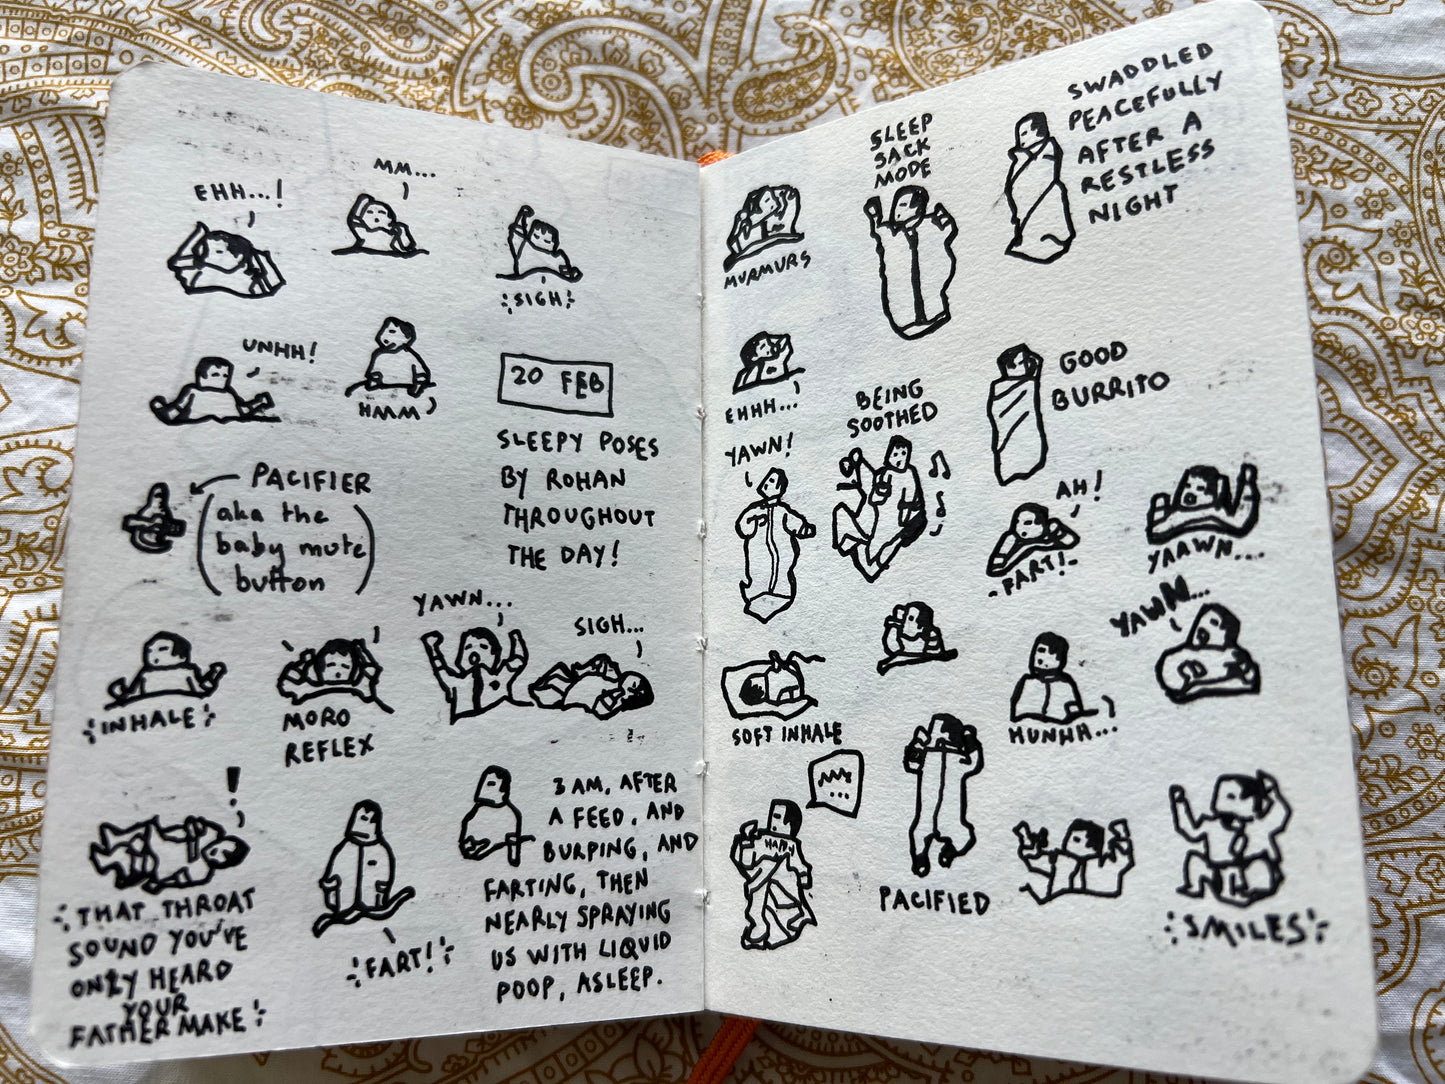 EHH...!
MM...
SIGH
UNHH!
HMM
20 FEB
SLEEPY POSES
BY ROHAN
THROUGHOUT
THE DAY!
PACIFIER
(aka the
baby mute
button)
INHALE
MORO
REFLEX
YAWN...
SIGH...
!
THAT THROAT
SOUND YOU'VE
ONLY HEARD
YOUR
FATHER MAKE
FART!
3 AM, AFTER
A FEED, AND
BURPING, AND
FARTING, THEN
NEARLY SPRAYING
US WITH LIQUID
POOP, ASLEEP.
MURMURS
SLEEP
SACK
MODE
SWADDLED
PEACEFULLY
AFTER A
RESTLESS
NIGHT
EHHH...
BEING
SOOTHED
GOOD
BURRITO
YAWN!
AH!
FART!
YAAWN...
SOFT INHALE
HUNHH...
YAWN...
PACIFIED
SMILES